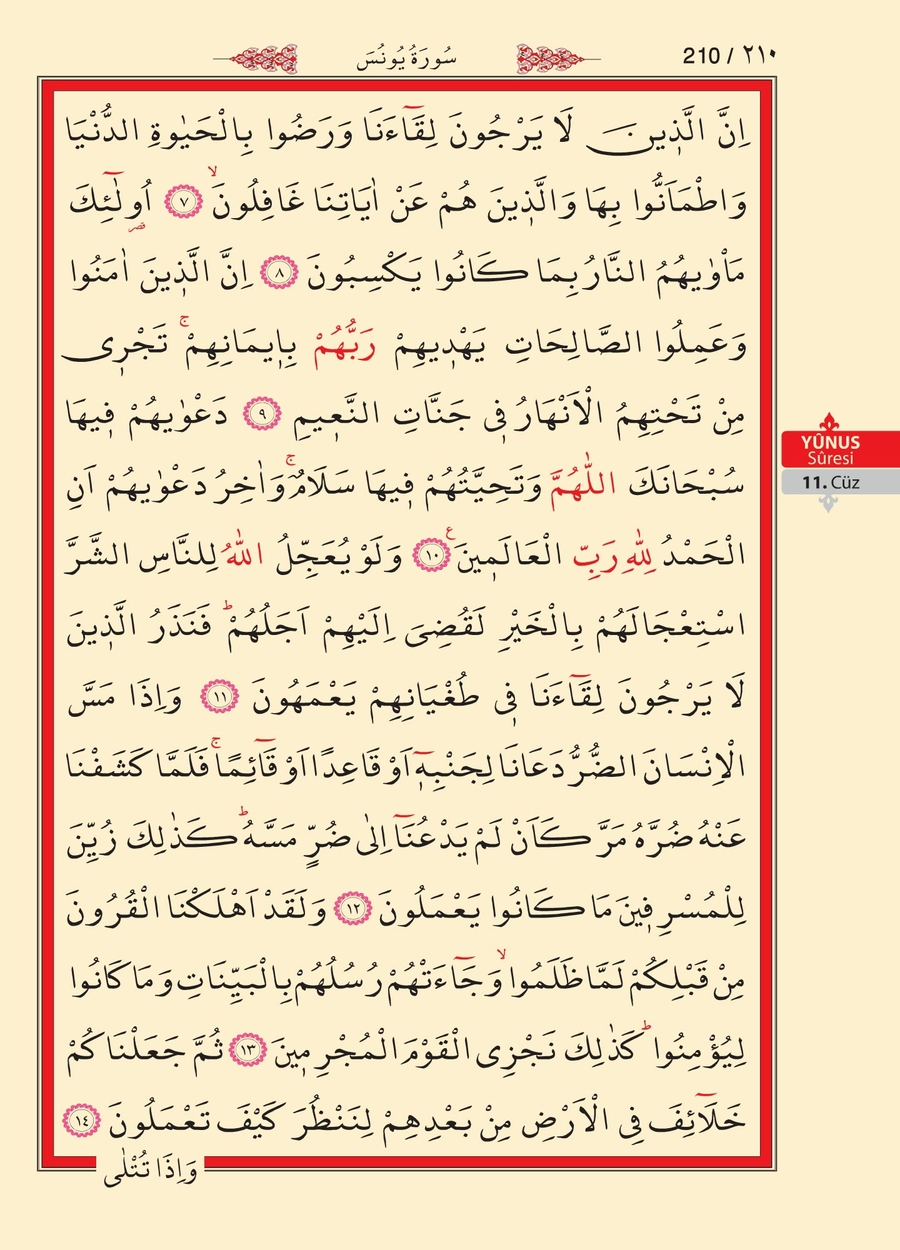 سُورَةُ يُونُسَ
210 / ٢١٠
اِنَّ الَّذ۪ينَ لَا يَرْجُونَ لِقَٓاءَنَا وَرَضُوا بِالْحَيٰوةِ الدُّنْيَا
وَاطْمَاَنُّوا بِهَا وَالَّذ۪ينَ هُمْ عَنْ اٰيَاتِنَا غَافِلُونَۙ ﴿٧﴾ اُو۬لٰٓئِكَ
قصر
مَأْوٰيهُمُ النَّارُ بِمَا كَانُوا يَكْسِبُونَ ﴿٨﴾ اِنَّ الَّذ۪ينَ اٰمَنُوا
وَعَمِلُوا الصَّالِحَاتِ يَهْد۪يهِمْ رَبُّهُمْ بِا۪يمَانِهِمْۚ تَجْر۪ى
مِنْ تَحْتِهِمُ الْاَنْهَارُ ف۪ى جَنَّاتِ النَّع۪يمِ ﴿٩﴾ دَعْوٰيهُمْ ف۪يهَا
سُبْحَانَكَ اللّٰهُمَّ وَتَحِيَّتُهُمْ ف۪يهَا سَلَامٌۚ وَاٰخِرُ دَعْوٰيهُمْ اَنِ
الْحَمْدُ لِلّٰهِ رَبِّ الْعَالَم۪ينَ ع ﴿١٠﴾ وَلَوْ يُعَجِّلُ اللّٰهُ لِلنَّاسِ الشَّرَّ
اسْتِعْجَالَهُمْ بِالْخَيْرِ لَقُضِىَ اِلَيْهِمْ اَجَلُهُمْؕ فَنَذَرُ الَّذ۪ينَ
لَا يَرْجُونَ لِقَٓاءَنَا ف۪ى طُغْيَانِهِمْ يَعْمَهُونَ ﴿١١﴾ وَاِذَا مَسَّ
الْاِنْسَانَ الضُّرُّ دَعَانَا لِجَنْبِه۪ٓ اَوْ قَاعِدًا اَوْ قَٓائِمًاۚ فَلَمَّا كَشَفْنَا
عَنْهُ ضُرَّهُ مَرَّ كَاَنْ لَمْ يَدْعُنَٓا اِلٰى ضُرٍّ مَسَّهُؕ كَذٰلِكَ زُيِّنَ
لِلْمُسْرِف۪ينَ مَا كَانُوا يَعْمَلُونَ ﴿١٢﴾ وَلَقَدْ اَهْلَكْنَا الْقُرُونَ
مِنْ قَبْلِكُمْ لَمَّا ظَلَمُواۙ وَجَٓاءَتْهُمْ رُسُلُهُمْ بِالْبَيِّنَاتِ وَمَا كَانُوا
لِيُؤْمِنُواؕ كَذٰلِكَ نَجْزِى الْقَوْمَ الْمُجْرِم۪ينَ ﴿١٣﴾ ثُمَّ جَعَلْنَاكُمْ
خَلَٓائِفَ فِى الْاَرْضِ مِنْ بَعْدِهِمْ لِنَنْظُرَ كَيْفَ تَعْمَلُونَ ﴿١٤﴾
وَاِذَا تُتْلٰى
YÛNUS
Sûresi
11. Cüz